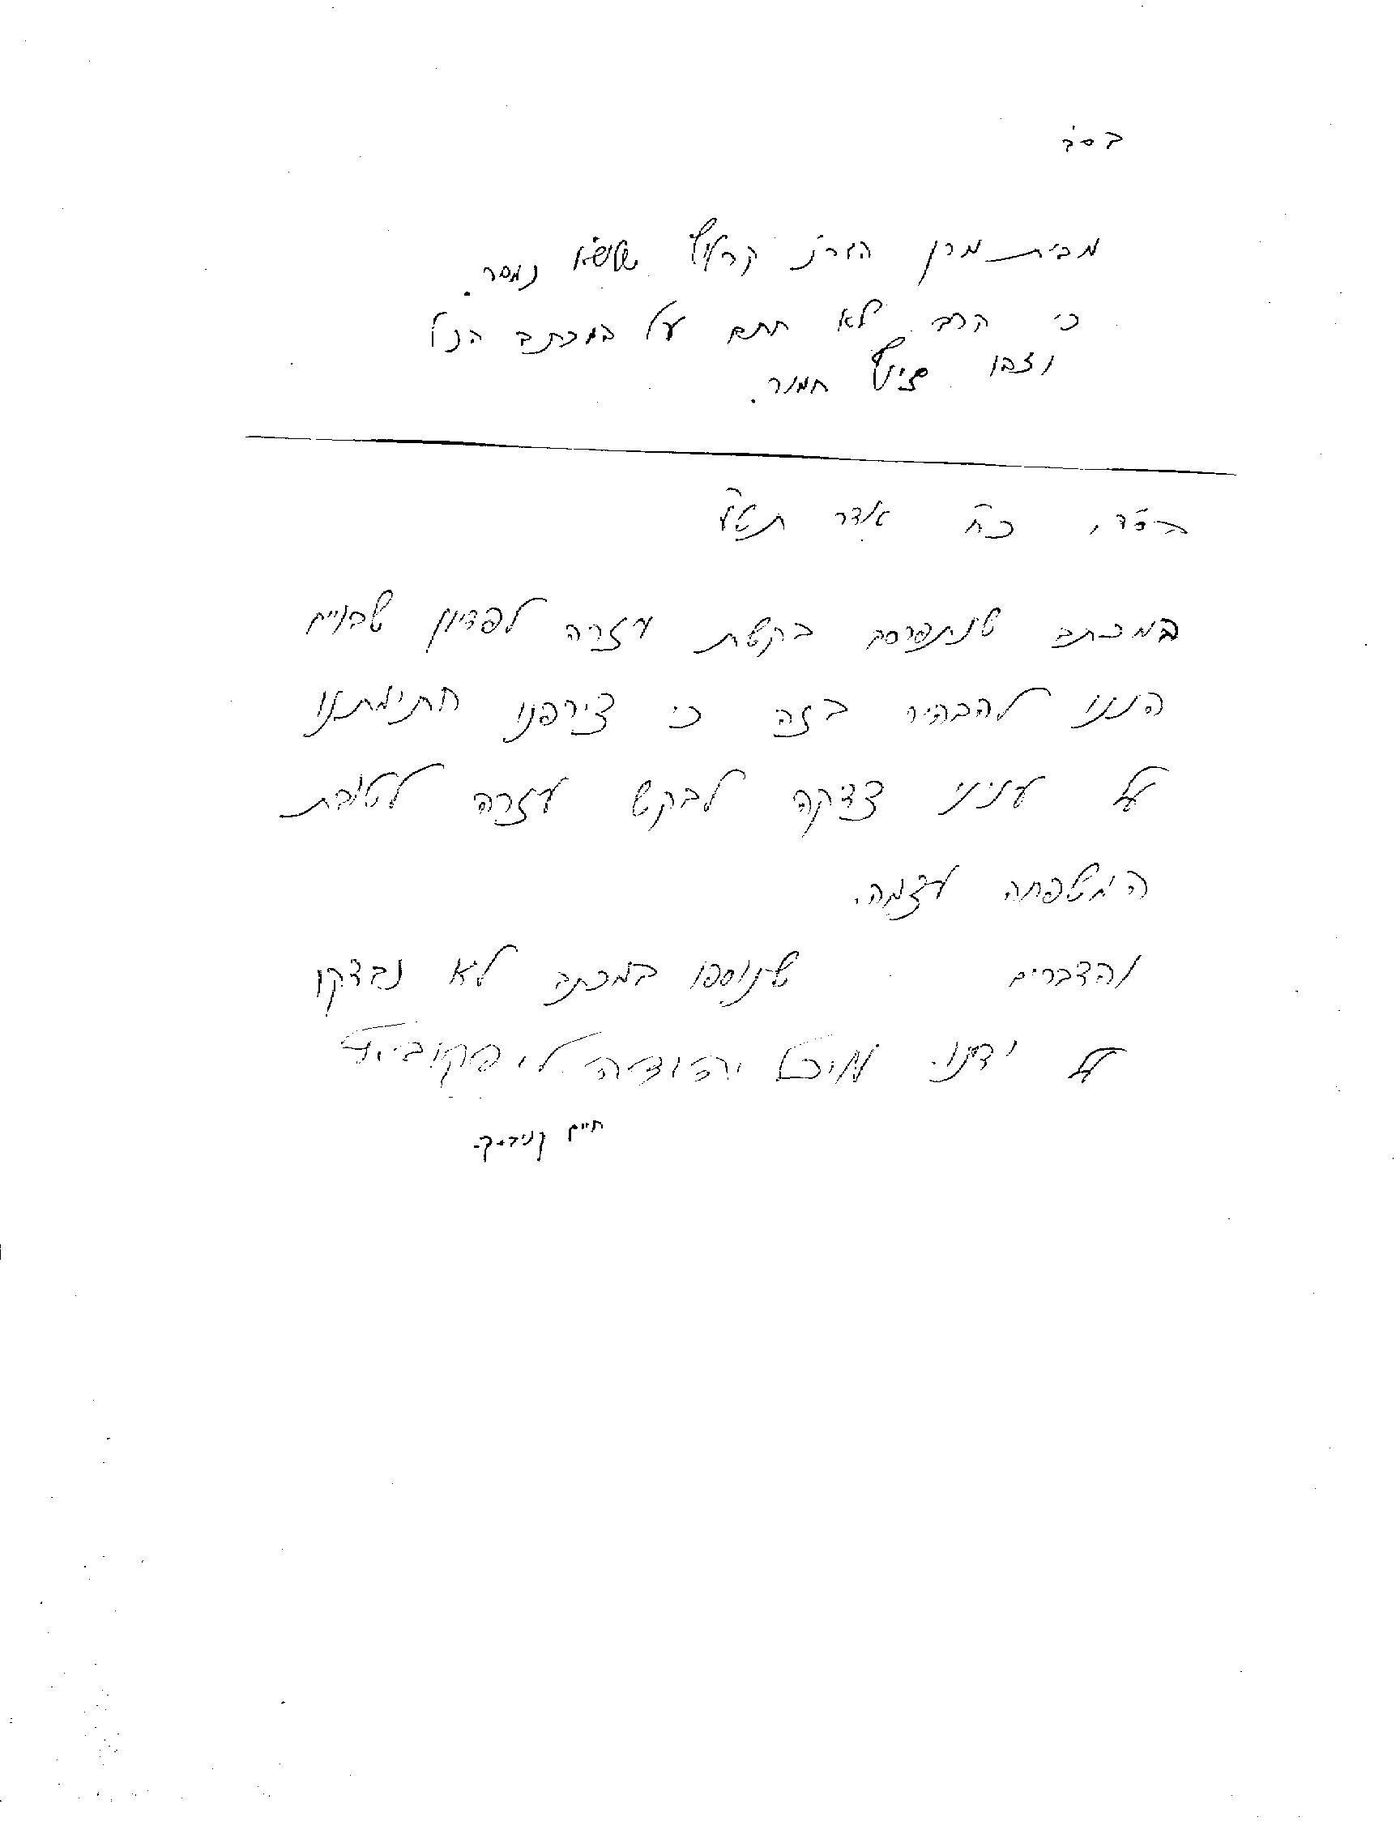 בס"ד
מבית מרן הגר"נ קרליץ שליט"א נמסר.
כי הרב לא חתם על המכתב הנ"ל
וזהו זיוף חמור.
בס"ד, כ"ח אדר תשע"
במכתב שנתפרסם בקשת עזרה לפדיון שבויים
הננו להבהיר בזה כי צירפנו חתימתנו
על עניני צדקה לבקש עזרה לטובת
המשפחה עצמה.
והדברים שנוספו במכתב לא נבדקו
על ידנו. מיכל יהודה ליפקוביץ
חיים קניבסקי